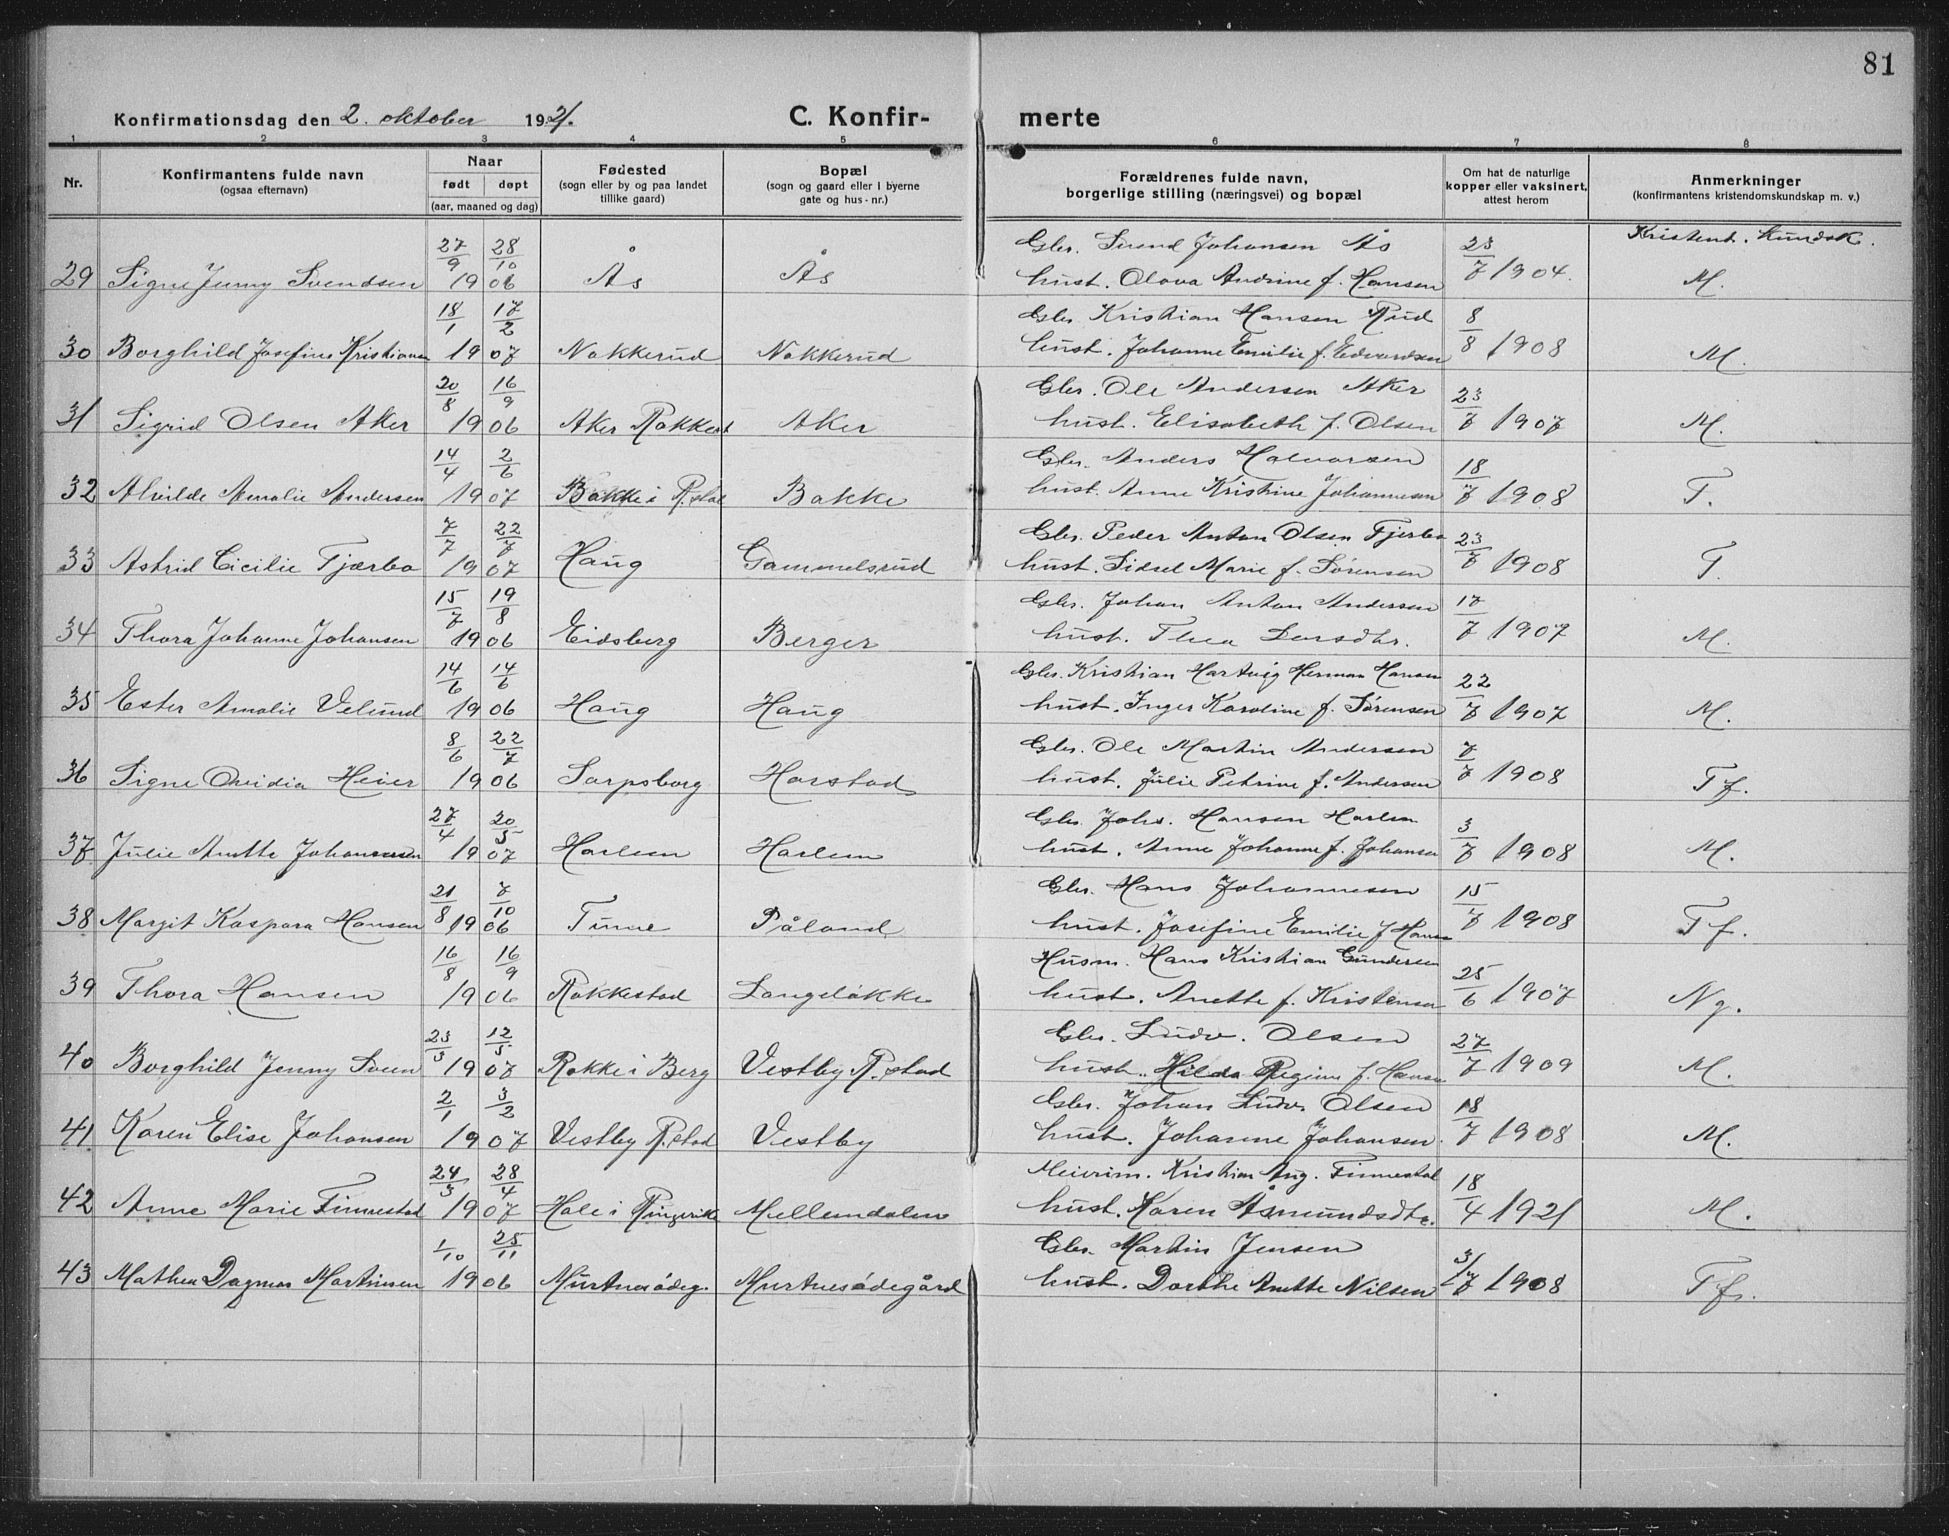 81
Konfirmationsdag den 2. oktober 1921.
C. Konfir- merte
1 2 3 4 5 6 7 8
Nr.
Konfirmantens fulde navn (ogsaa efternavn)
Naar født døpt (aar, maaned og dag)
Fødested (sogn eller by og paa landet tillike gaard)
Bopæl (sogn og gaard eller i byerne gate og hus-nr.)
Forældrenes fulde navn, borgerlige stilling (næringsvei) og bopæl
Om hat de naturlige kopper eller vaksinert, attest herom
Anmerkninger (konfirmantens kristendomskundskap m. v.)
Kristend. kundsk.
29 Signe Jenny Svendsen 27/9 28/10 1906 Ås Ås Gbr. Svend Johansen Ås
hust. Olava Andrine f. Hansen 23/7 1904. M.
30 Borghild Josefine Kristiansen 18/1 17/2 1907 Nakkerud Nakkerud Gbr. Kristian Hansen Rud
hust. Johanne Emilie f. Edvardsen 8/8 1908 M.
31 Sigrid Olsen Aker 20/8 16/9 1906 Aker Rakkest Aker Gbr. Ole Andersen Aker
hust. Elisabeth f. Olsen 23/7 1907 M.
32 Alvilde Amalie Andersen 14/4 2/6 1907 Bakke i R.stad Bakke Gbr. Anders Halvorsen
hust. Anne Kristine Johannesen 18/7 1908 T.
33 Astrid Cicilie Fjærbo 7/7 22/7 1907 Haug Gammelsrud Gbr. Peder Anton Olsen Fjerbo
hust. Sidsel Marie f. Sørensen 23/7 1908 T.
34 Thora Johanne Johansen 15/7 19/8 1906 Eidsberg Berger Gbr. Johan Anton Andersen
hust. Thea Larsdtr. 17/7 1907 M.
35 Ester Amalie Velund 14/6 14/6 1906 Haug Haug Gbr. Kristian Hartvig Herman Hansen
hust. Inger Karoline f. Sørensen 22/7 1907 M.
36 Signe Ovidia Heier 8/6 22/7 1906 Sarpsborg Harstad Gbr. Ole Martin Andersen
hust. Julie Petrine f. Andersen 7/7 1908 Tf.
37 Julie Anette Johannesen 27/4 20/5 1907 Harlem Harlem Gbr. Johs. Hansen Harlem
hust. Anne Johanne f. Johansen 3/7 1908 M.
38 Margit Kaspara Hansen 21/8 7/10 1906 Tune Påland Gbr. Hans Johannesen
hust. Josefine Emilie f. Hansen 15/7 1908 Tf.
39 Thora Hansen 16/8 16/9 1906 Rakkestad Langeløkke Husm. Hans Kristian Gundersen
hust. Anette f. Kristensen 25/6 1907 Ng.
40 Borghild Jenny Sveen 23/3 12/5 1907 Rokke i Berg Vestby R.stad Gbr. Ludv. Olsen
hust. Hilda Regine f. Hansen 27/7 1909 M.
41 Karen Elise Johansen 2/1 3/2 1907 Vestby R.stad Vestby Gbr. Johan Ludv. Olsen
hust. Johanne Johansen. 18/7 1908 M.
42 Anne Marie Finnestad 24/3 28/4 1907 Hole i Ringerike Mellemdalen Meierim. Kristian Aug. Finnestad
hust. Karen Åsmundsdtr. 18/4 1921 M.
43 Mathea Dagmar Martinsen 1/10 25/11 1906 Murtnesødeg. Murtnesødegård Gbr. Martin Jensen
hust. Dorthe Anette Nilsen 3/7 1908 Tf.